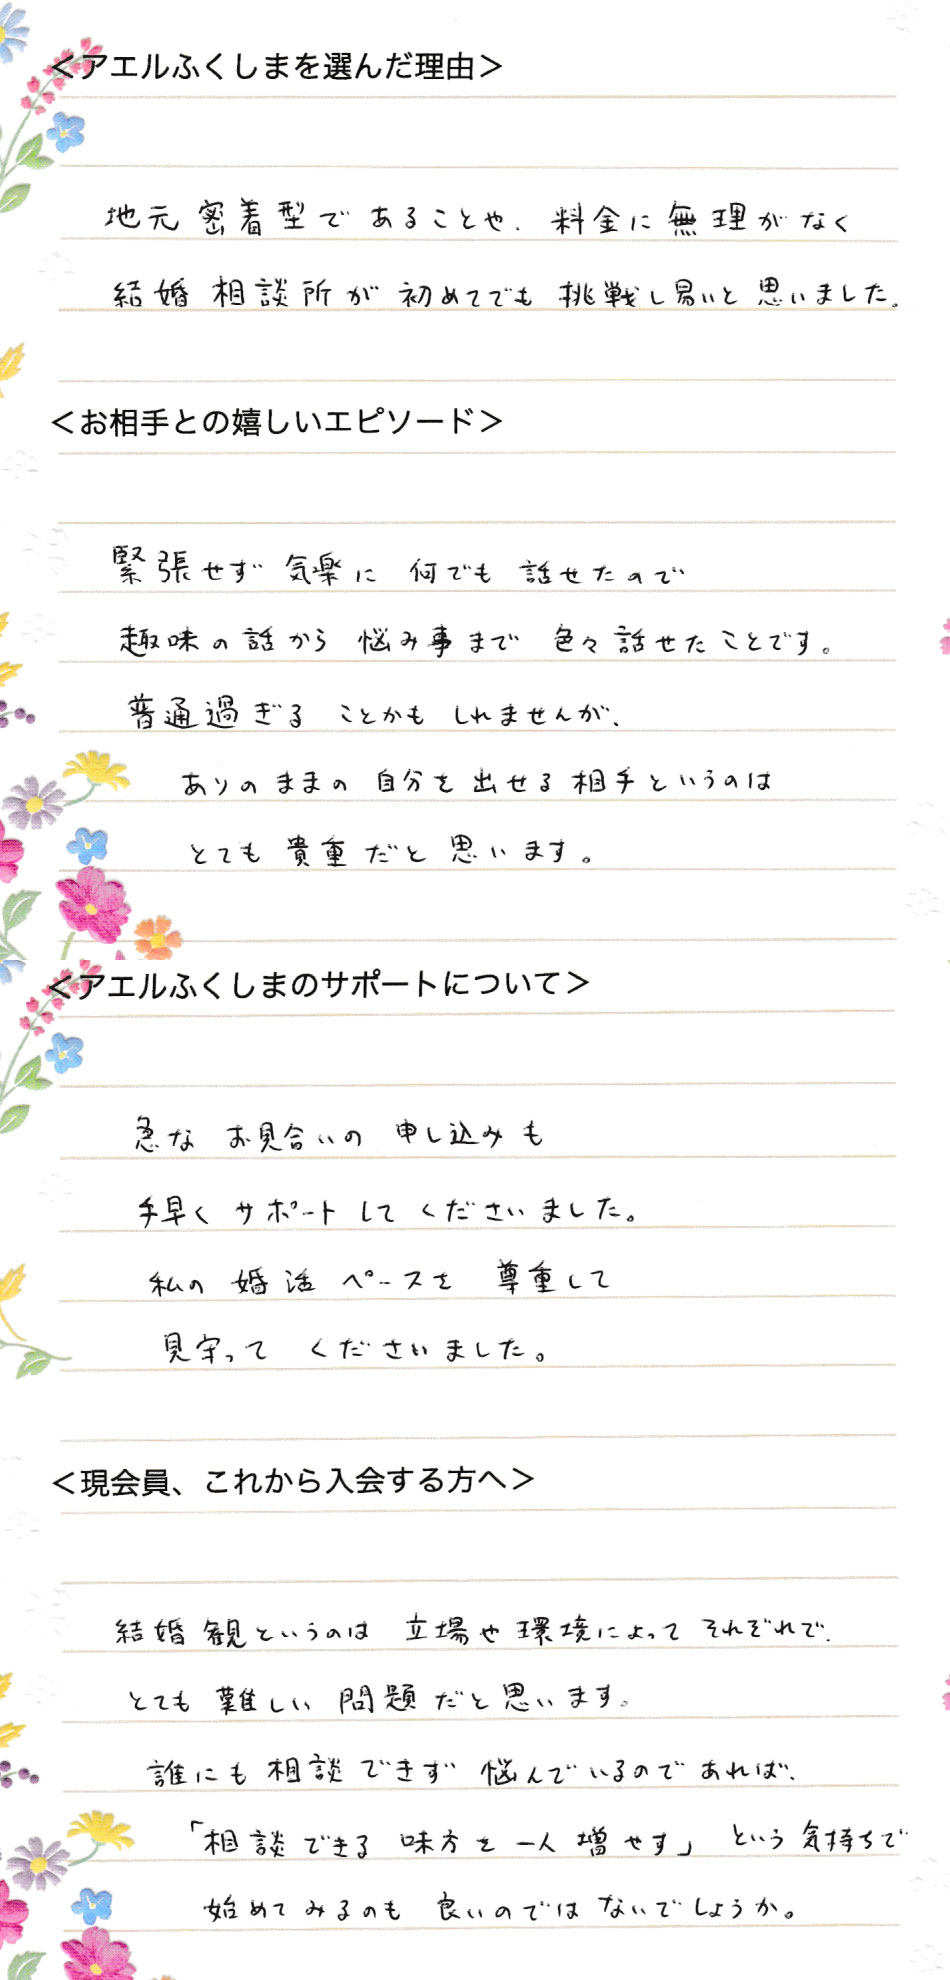 ＜アエルふくしまを選んだ理由＞
地元密着型であることや、料金に無理がなく
結婚相談所が初めてでも挑戦し易いと思いました。
＜お相手との嬉しいエピソード＞
緊張せず気楽に何でも話せたので
趣味の話から悩み事まで色々話せたことです。
普通過ぎることかもしれませんが、
ありのままの自分を出せる相手というのは
とても貴重だと思います。
＜アエルふくしまのサポートについて＞
急なお見合いの申し込みも
手早くサポートしてくださいました。
私の婚活ペースを尊重して
見守ってくださいました。
＜現会員、これから入会する方へ＞
結婚観というのは立場や環境によってそれぞれで、
とても難しい問題だと思います。
誰にも相談できず悩んでいるのであれば、
「相談できる味方を一人増やす」という気持ちで
始めてみるのも良いのではないでしょうか。